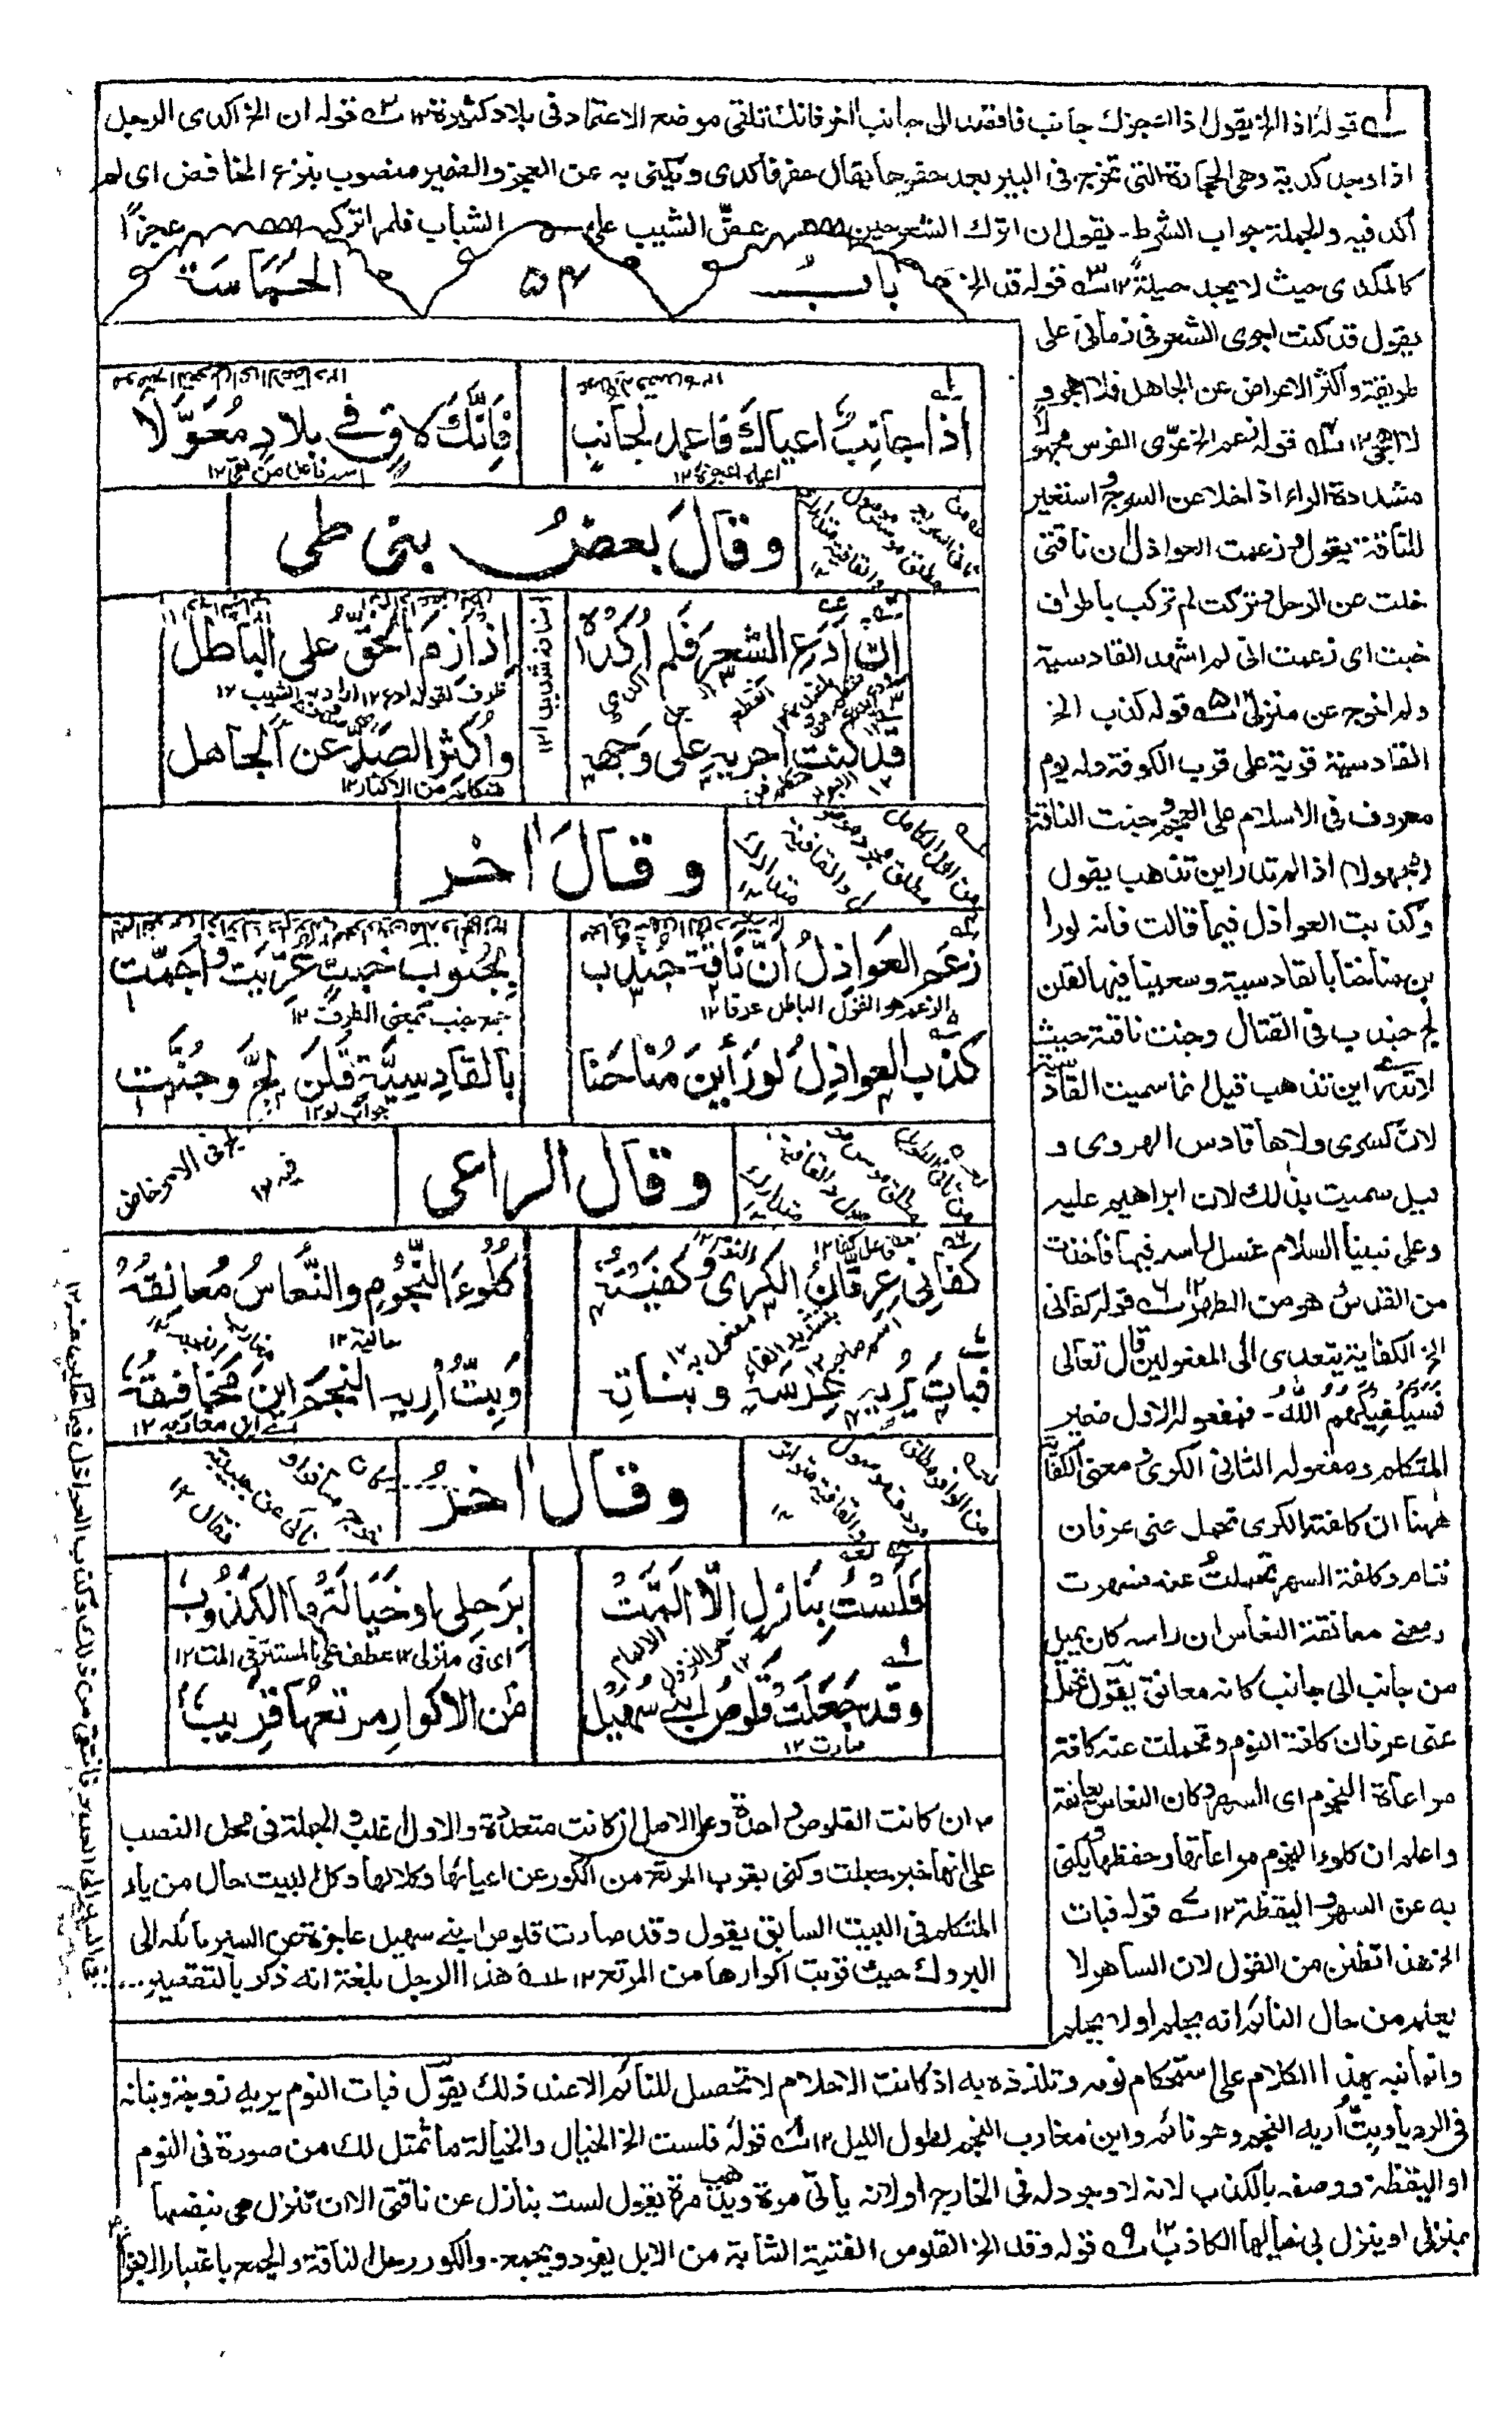 له قوله اذا الخ يقول اذا اعجزك جانب فاقصد الى جانب اخر فانك تلقى موضع الاعتماد فى بلاد كثيرة ١٢ ٣ه قوله ان الخ اكدى الرجل
اذا وجد كدية وهى الحجارة التى تخرج فى البير بعد حفرها يقال حفر فاكدى ويكنى به عن العجز والضمير منصوب بنزع الخافض اى لم
أكد فيه والجملة جواب الشرط۔ يقول ان اترك الشعر حين عضّ الشيب على الشباب فلم اتركه عجزًا
كالمكدى حيث لا يجد حيلةً ١٢ ٣ه قوله قد الخ
باب ٥٤ الحماسة
يقول قد كنت اجرى الشعر فى زمانى على
طريقة واكثر الاعراض عن الجاهل فلا اهجو و
لا اهجى ١٢ ٤ه قوله زعم الخ عرّى الفرس مجهولًا
مشددة الراء اذا خلا عن السرج و استعير
للناقة يقول زعمت العواذل ان ناقتى
خلت عن الرحل و تركت لم تركب باطراف
خبت اى زعمت انى لم اشهد القادسية
ولم اخرج عن منزلى ١٢ ٥ه قوله كذب الخ
القادسية قرية على قرب الكوفة وله يوم
معروف فى الاسلام على العجم و جنت الناقة
(مجهولا) اذا لم تدر اين تذهب يقول
وكذبت العواذل فيما قالت فانه لو را
ين مناخنا بالقادسية وسعينا فيها لقلن
لج جندب فى القتال وجنت ناقته حيث
لا تدرى اين تذهب قيل انما سميت القادسية
لان كسرى ولاها قادس الهروى و
قيل سميت بذلك لان ابراهيم عليه
وعلى نبينا السلام غسل راسه فيها فاخذت
من القدس هو من الطهر ١٢ ٦ه قوله كفانى
الخ الكفاية يتعدى الى المفعولين قال تعالى
فسيكفيكهم الله۔ فمفعوله الاول ضمير
المتكلم ومفعوله الثانى الكرى و معنى الكفاية
ههنا ان كلفة الكرى تحمل عنى عرفان
فنام وكلفة السهر تحملت عنه فسهرت
ومعنى معانقة النعاس ان راسه كان يميل
من جانب الى جانب كانه معانق يقول تحمل
عنى عرفان كلفة النوم وتحملت عنه كلفة
مراعاة النجوم اى السهر وكان النعاس يعانقه
واعلم ان كلوء النجوم مراعاتها وحفظها ويكنى
به عن السهر واليقظة ١٢ ٧ه قوله فبات
الخ هذا تظنن من القول لان الساهر لا
يعلم من حال النائم انه يحلم او لا يحلم
اذا جانِبٌ اعياكَ فاعمد لجانبٍ
فَاِنَّكَ لاقٍ فى بلادٍ مُعَوَّلا
اعياه اعجزه ١٢
اسم فاعل من لقى ١٢
وقالَ بعضُ بنى طى
اِن أدَعِ الشعرَ فلم أُكدِهٖ
اذ أزمَ الحقُّ على الباطل
ظرف لقوله ادع ١٢ اراد به الشيب ١٢
قد كنت اجريهِ على وجههٖ
وأكثر الصدَّ عن الجاهل
متكلم من الاكثار ١٢
وقالَ اخر
زعم العواذلُ أنَّ ناقةَ جندب
بجنوب خبتٍ عُرّيت و اجمّت
الزعم هو القول الباطل عرفا ١٢
جمع جنب بمعنى الطرف ١٢
كذب العواذلُ لو رأين مُناخنا
بالقادسيّة قلن لجّ وجُنّت
جواب لو ١٢
وقال الراعى
كفانى عرفّانُ الكرى وكفيتهٗ
كُلوءَ النّجومِ والنّعاسُ مُعانقهٗ
حالية ١٢
فباتَ يُريهِ عِرسَهٗ وبناتهٖ
وبتُّ أريهِ النجمَ اين مخافقهٗ
وقال اخرُ
فلستُ بنازلٍ اِلّا ألمّتْ
برحلى او خيالتُها الكذوبُ
اى فى منزلى ١٢ عطف على المستتر فى المت ١٢
هو النزول
وقد جعلت قلوصُ ابنى سهيل
من الاكوارِ مرتعُها قريبُ
صارت ١٢
ان كانت القلوص واحدة وعلى الاصل ان كانت متعددة والاول اغلب والجملة فى محل النصب
على انها خبر جعلت وكنى بقرب المرتع من الكور عن اعيائها وكلالها وكل البيت حال من ياء
المتكلم فى البيت السابق يقول وقد صارت قلوص ابنى سهيل عاجزة عن السير مائلة الى
البروك حيث قربت اكوارها من المرتع ١٢ هذا الرجل بلغته انه ذكر بالتقصير
وانما نبه بهذا الكلام على استحكام نومه وتلذذه به اذ كانت الاحلام لا تحصل للنائم الا عند ذلك يقول فبات النوم يريه زوجة وبناته
فى الرويا وبتّ أريه النجم وهو نائم واين مغارب النجم لطول الليل ١٢ ٨ه قوله فلست الخ الخيال والخيالة ما تمثل لك من صورة فى النوم
او اليقظة ووصفه بالكذب لانه لا وجود له فى الخارج او لانه ياتى مرة ويذهب مرة يقول لست بنازل عن ناقتى الا ان تنزل هى بنفسها
بمنزلى او ينزل بى خيالها الكاذب ١٢ ٩ه قوله وقد الخ القلوص الفتية الشابة من الابل يفرد ويجمع۔ والكور رحل الناقة والجمع باعتبار الاجزاء